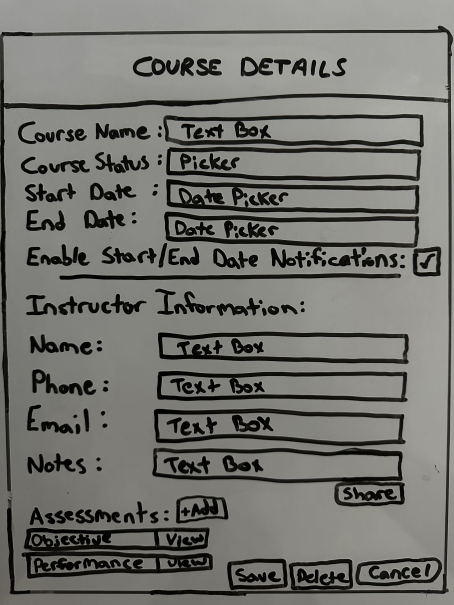 COURSE DETAILS
Course Name: Text Box
Course Status: Picker
Start Date : Date Picker
End Date: Date Picker
Enable Start/End Date Notifications: ✓
Instructor Information:
Name: Text Box
Phone: Text Box
Email: Text Box
Notes: Text Box
Share
Assessments: +Add
Objective View
Performance View
Save Delete Cancel